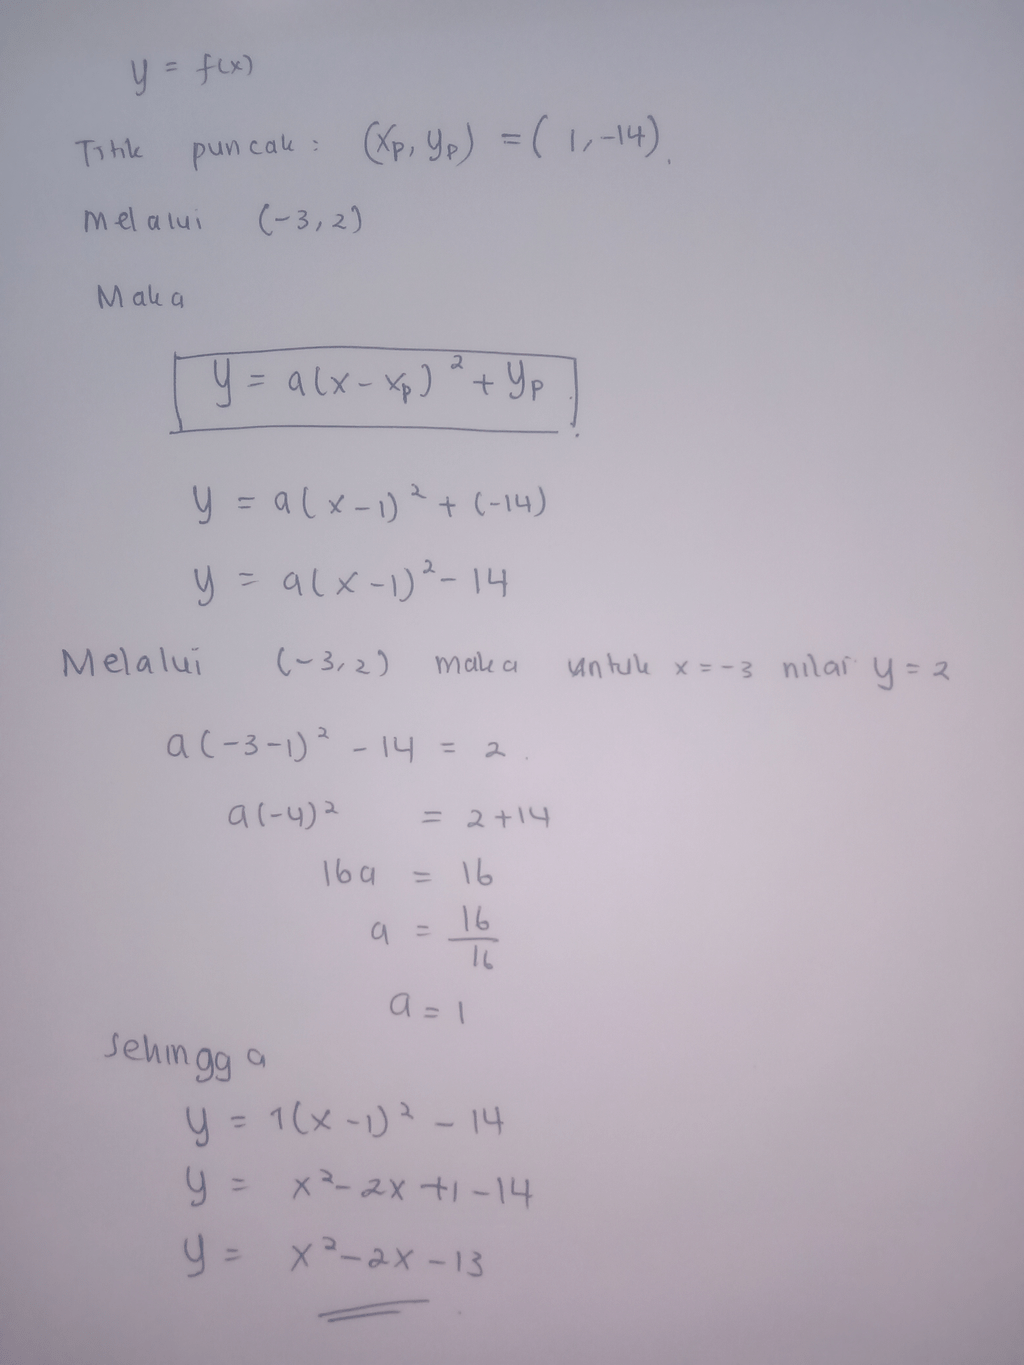 y = f(x)
Titik puncak : (xp, yp) = ( 1, -14).
melalui (-3, 2)
Maka
y = a(x - xp)² + yp
y = a(x-1)² + (-14)
y = a(x-1)² - 14
Melalui (-3, 2) maka untuk x = -3 nilai y = 2
a(-3-1)² - 14 = 2.
a(-4)² = 2+14
16a = 16
a = 16/16
a = 1
sehingga
y = 1(x-1)² - 14
y = x² - 2x + 1 - 14
y = x² - 2x - 13